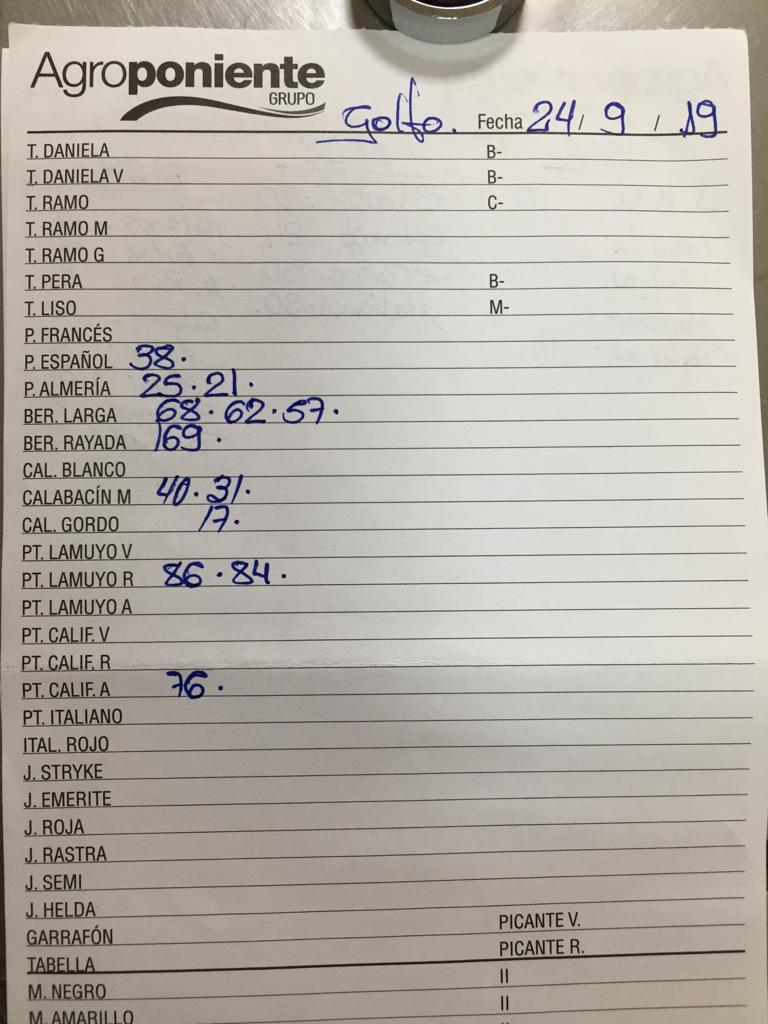 Agroponiente
GRUPO
Golfo. Fecha 24/ 9 / 19
T. DANIELA B-
T. DANIELA V B-
T. RAMO C-
T. RAMO M
T. RAMO G
T. PERA B-
T. LISO M-
P. FRANCÉS
P. ESPAÑOL 38.
P. ALMERÍA 25 . 21 .
BER. LARGA 68 . 62 . 57 .
BER. RAYADA 169 .
CAL. BLANCO
CALABACÍN M 40 . 31 .
CAL. GORDO 17 .
PT. LAMUYO V
PT. LAMUYO R 86 . 84 .
PT. LAMUYO A
PT. CALIF. V
PT. CALIF. R
PT. CALIF. A 76 .
PT. ITALIANO
ITAL. ROJO
J. STRYKE
J. EMERITE
J. ROJA
J. RASTRA
J. SEMI
J. HELDA
GARRAFÓN PICANTE V.
TABELLA PICANTE R.
M. NEGRO II
M. AMARILLO II